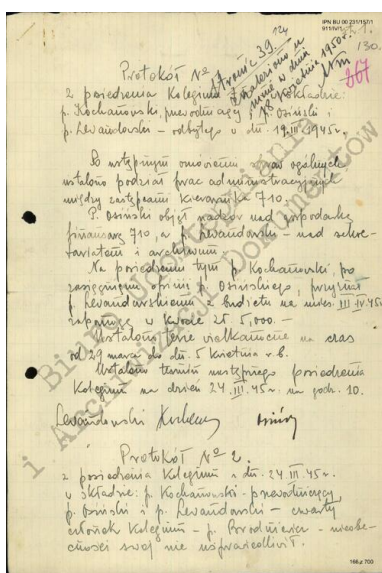 IPN BU 00 231/157 t.1
130.
Stronic 39.
18 września 1950 r.
Protokół Nº
z posiedzenia Kolegium 710 w składzie:
p. Kochanowski, przewodniczący, p. Osiński i
p. Lewandowski – odbytego w dn. 19.III.1945 r.
Po wstępnym omówieniu spraw ogólnych
ustalono podział prac administracyjnych
między zastępcami Kierownika 710.
P. Osiński objął nadzór nad gospodarką
finansową 710, a p. Lewandowski – nad sekre-
tariatem i archiwum.
Na posiedzeniu tym p. Kochanowski, po
zasięgnięciu opinii p. Osińskiego, przyznał
p. Lewandowskiemu z budżetu na mies. III.IV.45 r.
zapomogę w kwocie zł. 5,000.–
Ustalono ferie wielkanocne na czas
od 29 marca do dn. 5 kwietnia r.b.
Ustalono termin następnego posiedzenia
Kolegium na dzień 24.III.45 r. na godz. 10.
Lewandowski
Protokół Nº 2.
z posiedzenia Kolegium z dn. 24.III.45 r.
w składzie: p. Kochanowski – przewodniczący
p. Osiński i p. Lewandowski – czwarty
członek Kolegium – p. – nieobe-
cności swej nie usprawiedliwił.
Biuro Udostępniania
i Archiwizacji Dokumentów